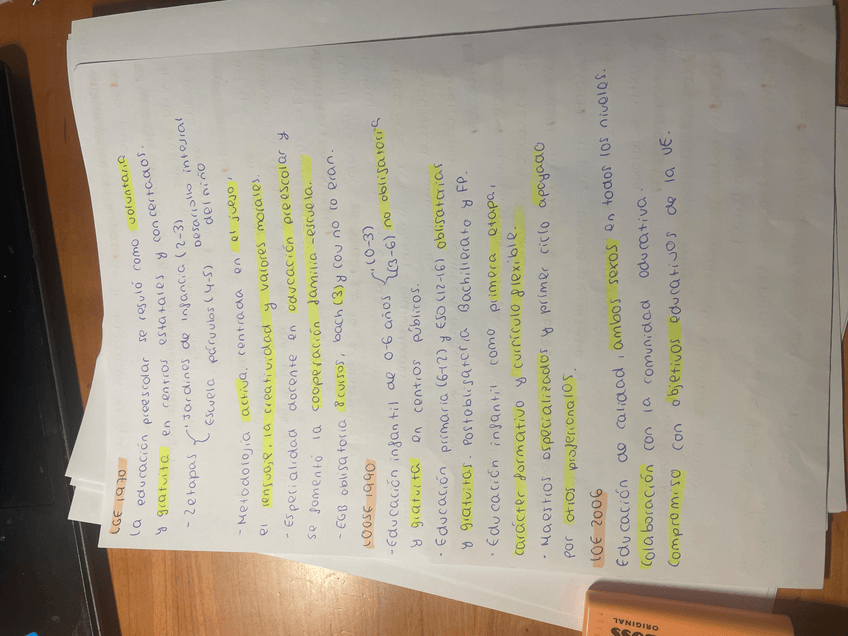 LGE 1970
La educación preescolar se reguló como voluntaria
y gratuita en centros estatales y concertados.
- 2 etapas { Jardines de infancia (2-3)
Escuela párvulos (4-5)
desarrollo integral
del niño
- Metodología activa, centrada en el juego,
el lenguaje, la creatividad y valores morales.
- Especialidad docente en educación preescolar y
se fomentó la cooperación familia-escuela.
- EGB obligatoria 8 cursos, bach (3) y cou no lo eran.
LOGSE 1990
- Educación infantil de 0-6 años { (0-3)
(3-6) no obligatoria
y gratuita en centros públicos.
· Educación primaria (6-12) y ESO (12-16) obligatorias
y gratuitas. Postobligatoria Bachillerato y FP.
· Educación infantil como primera etapa,
carácter formativo y currículo flexible.
· Maestros especializados y primer ciclo apoyado
por otros profesionales.
LOE 2006
Educación de calidad, ambos sexos en todos los niveles.
Colaboración con la comunidad educativa.
Compromiso con objetivos educativos de la UE.
BOSS
ORIGINAL